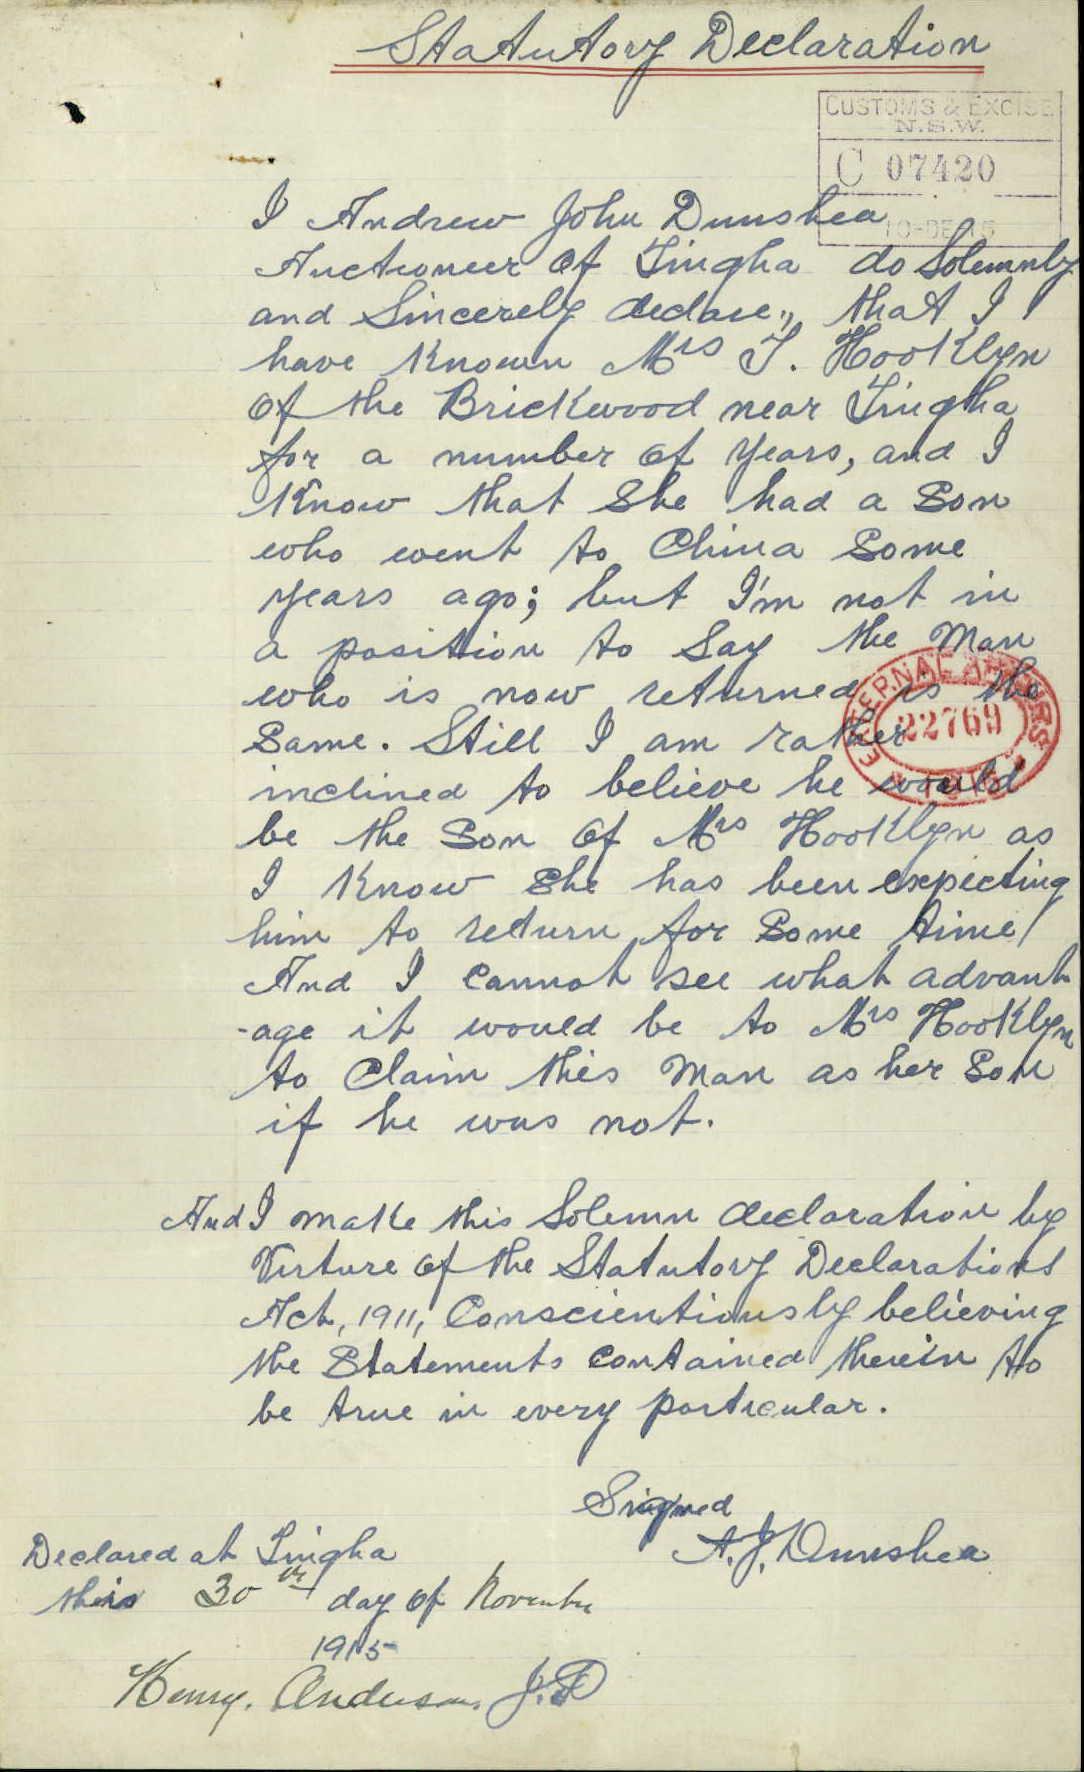 Statutory Declaration
CUSTOMS & EXCISE
N.S.W.
C 07420
10-DE-15
I Andrew John Dunshea
Auctioneer of Tingha do Solemnly
and Sincerely declare, that I
have Known Mrs T. Hooklyn
of the Brickwood near Tingha
for a number of years, and I
Know that She had a Son
who went to China Some
years ago; but I'm not in
a position to Say the Man
who is now returned is the
EXTERNAL AFFAIRS
22769
Same. Still I am rather
inclined to believe he would
be the Son of Mrs Hooklyn as
I Know She has been expecting
him to return for Some time
And I Cannot see what advant
-age it would be to Mrs Hooklyn
to Claim this Man as her Son
if he was not.
And I make this Solemn declaration by
Virture of the Statutory Declarations
Act, 1911, Conscientiously believing
the Statements contained therein to
be true in every particular.
Signed
A. J. Dunshea
Declared at Tingha
this 30th day of November
1915
Henry. Anderson. J.P